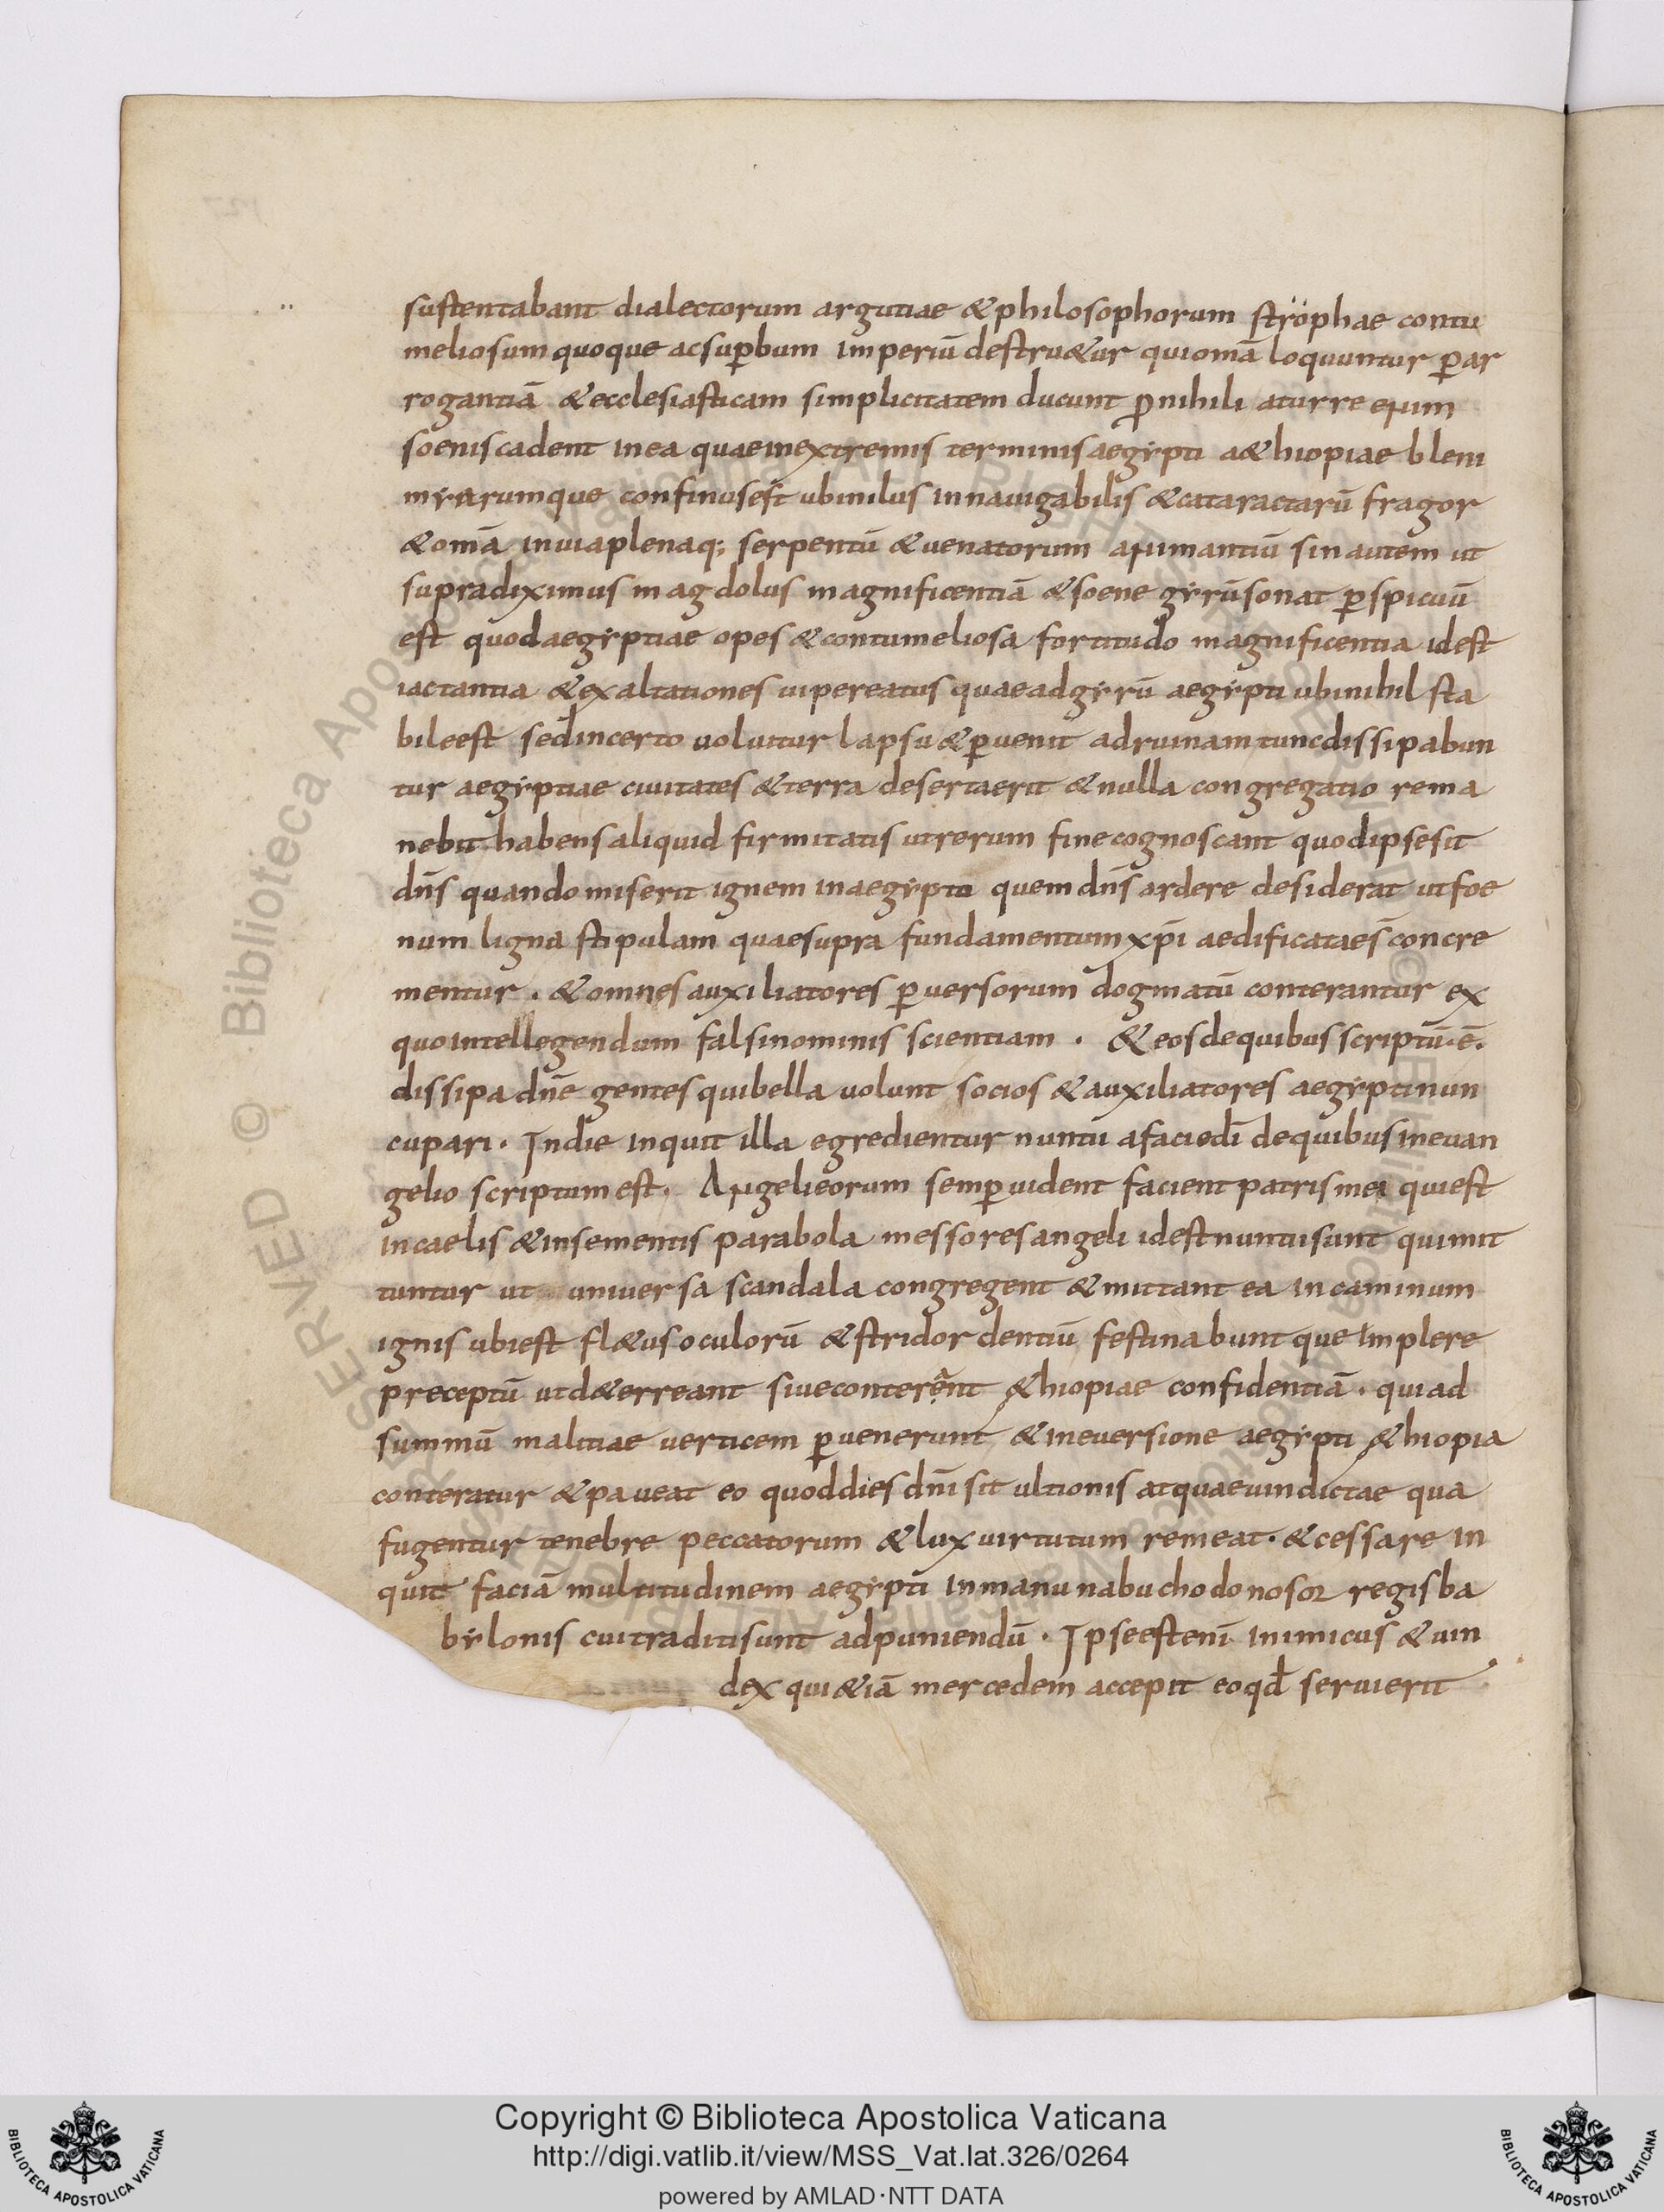 sustentabant dialectorum argutiae &philosophorum strophae contu
meliosum quoque acsuꝑbum imperiū destru&ur quiomā loquuntur ꝑar
rogantiā &ecclesiasticam simplicitatem ducunt ꝓnihili aturre eɼum
soeniscadent inea quaeinextremis terminisaegẏpti a&hiopiae blem
mẏarumque confinusest ubinilus innauigabilis &cataractarū fragor
&omā inuiaplenaq; serpentū &uenatorum animantiū sin autem ut
supradiximus magdolus magnificentiā &soene gẏrūsonat ꝑspicuū
est quodaegẏptiae opes &contumeliosa fortitudo magnificentia idest
iactantia &exaltationes uipereatus quaeadgẏrū aegẏpti ubinihil sta
bileest sedincerto uoluitur lapsu&ꝑuenit adruinamtuncdissipabun
tur aegẏptiae ciuitates &terra desertaerit &nulla congregatio rema
nebit habensaliquid firmitatis utrerum finecognoscant quodipsesit
dn̄s quandomiserit ignem inaegẏpto quemdn̄s ardere desiderat utfoe
num ligna stipulam quaesupra fundamentumxp̄i aedificataēs concre
mentur . &omnesauxiliatores ꝑuersorum dogmatū conterantur ex
quointellegendum falsinominis scientiam . &eosdequibusscriptū.ē.
dissipa dn̄e gentes quibella uolunt socios &auxiliatores aegẏptinun
cupari. Indie inquit illa egredientur nuntii afaciedī dequibusineuan
gelio scriptumest. Angelieorum semꝑuident facientpatrismei quiest
incaelis &insementis parabola messoresangeli idestnuntiisunt quimit
tuntur ut uniuersa scandala congregent &mittant ea in caminum
ignis ubiest fl&usoculorū &stridor dentiū festinabunt que implere
preceptū utd&erreant siueconterent &hiopiae confidentiā. quiad
summū malitiae uerticem ꝑuenerunt &ineuersione aegẏpti &hiopia
conteratur &paueat eo quoddies dn̄isit ultionis atquaeuindictae qua
fugentur tenebre peccatorum &lux uirtutum remeat. &cessare in
quit faciā multitudinem aegẏpti inmanunabuchodonosor regisba
bẏlonis cuitraditisunt adpuniendū. Ipseestenī inimicus &uin
dex qui&iā mercedem accepit eoqđ seruierit
Copyright © Biblioteca Apostolica Vaticana
http://digi.vatlib.it/view/MSS_Vat.lat.326/0264
powered by AMLAD·NTT DATA
BIBLIOTECA APOSTOLICA VATICANA
BIBLIOTECA APOSTOLICA VATICANA